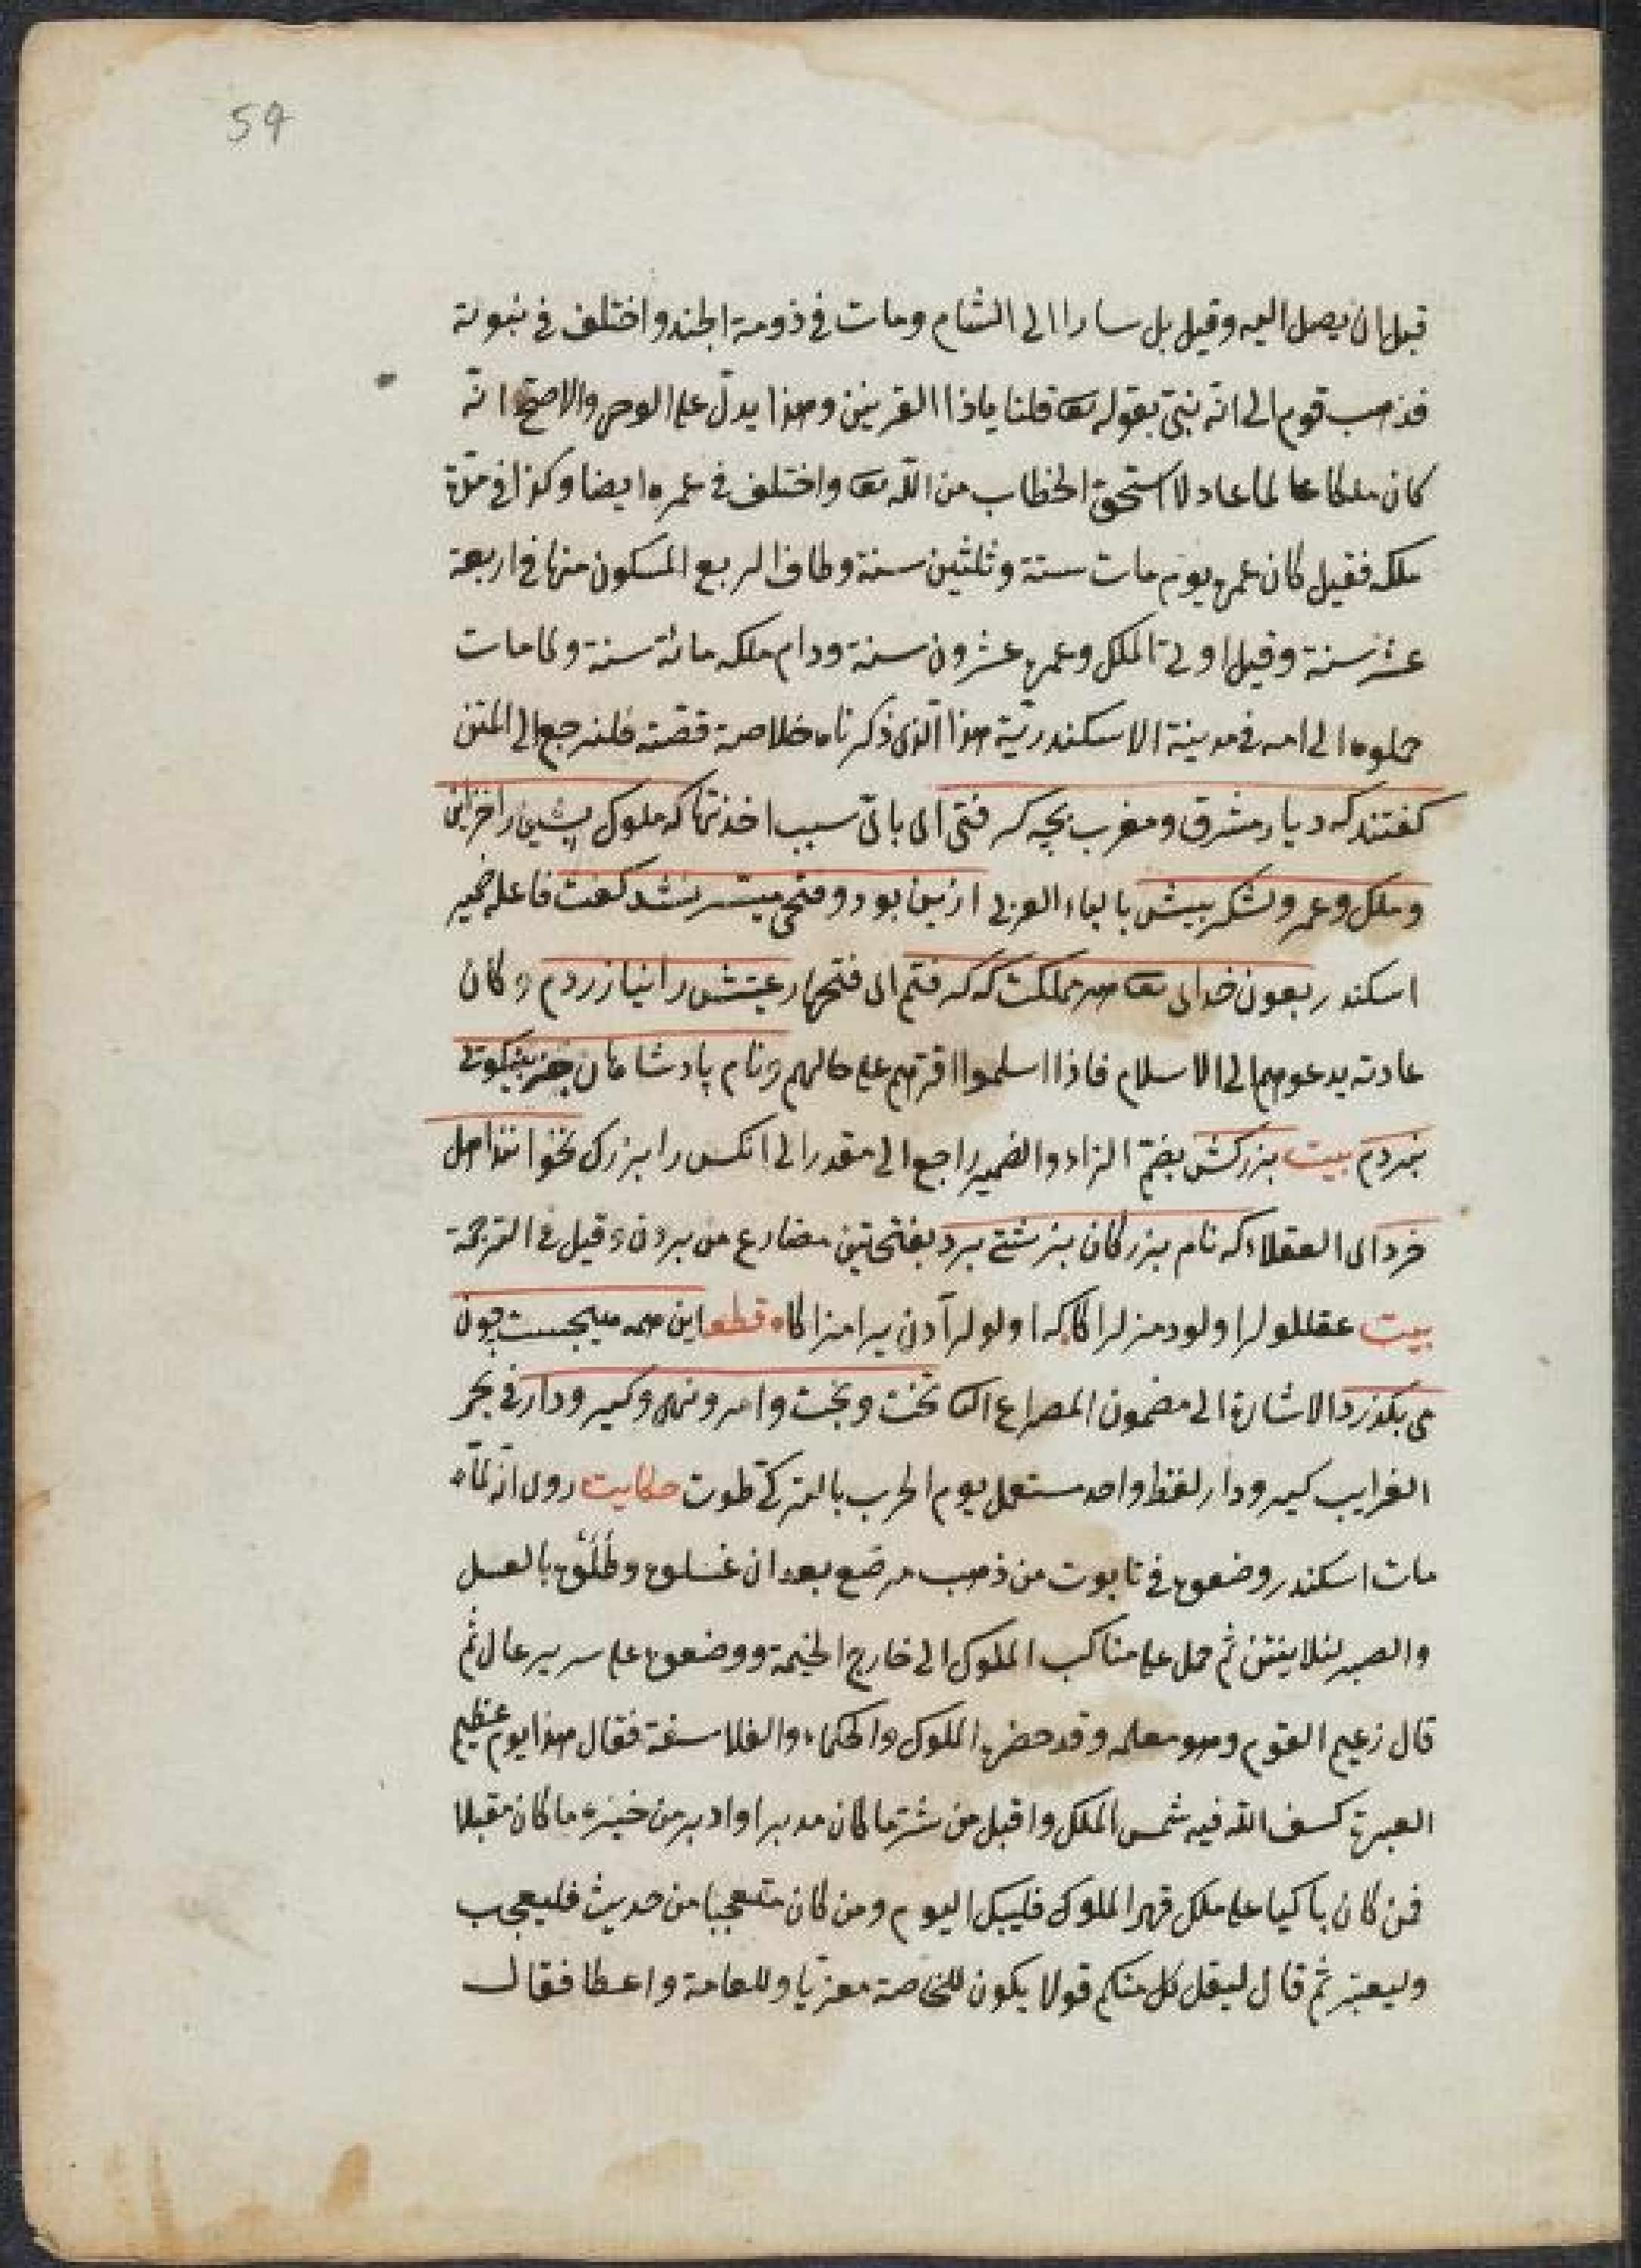 59
قبل ان يصل اليه وقيل بل سار الى الشام ومات في ذومة الجند واختلف في نبوته
فذهب قوم الى انه نبيّ بقوله تعا قلنا ياذا القرنين وهذا يدلّ على الوحى والاصحّ انّه
كان ملكا عالما عادلا استحق الخطاب من اللّه تعا واختلف في عمره ايضا وكذا في مدّة
ملكه فقيل كان عمره يوم مات ستة وثلثين سنة وطاف الربع المسكون منها في اربعة
عشر سنة وقيل اوتى الملك وعمره عشرون سنة ودام ملكه مائة سنة ولما مات
حملوه الى امه في مدينة الاسكندريّة هذا الّذى ذكرناه خلاصة قصّته فلنرجع الى المتن
كفتندكه ديار مشرق ومغرب بچه كرفتى اى باىّ سبب اخذتها كه ملوك پيشين را خزاين
وملك وعمر ولشكر بيش بالباء العربى ازين بود وفتحى ميسر نشد كفت فاعله ضمير
اسكندر بعون خداى تعا هر مملكت كه كرفتم اى فتحها رعيتش را نيازردم وكان
عادته يدعوهم الى الاسلام فاذا اسلموا اقرّهم على حالهم ونام پادشاهان جز بنيكوئى
نبردم بيت بزركش بضمّ الزاء والضمير راجع الى مقدر اى انكس را بزرك نخوانند اهل
خرد اى العقلاء كه نام بزركان بزشتى برد بفتحتين مضارع من بردن وقيل في الترجمة
بيت عقللولر اولود مزلر اكا كه اولولر آدن يرامز اكاه قطعه اين همه هيچست چون
مى بكذرد الاشارة الى مضمون المصراع الثا تخت وبخت وامر ونهى وكير ودار في بحر
الغرايب كير ودار لفظ واحد مستعمل يوم الحرب بالتركى طوت حكايت روى انّه لمّا
مات اسكندر وضعوه في تابوت من ذهب مرصّع بعد ان غسلوه وطلوه بالعسل
والصبر لئلا ينتن ثم حمل على مناكب الملوك الى خارج الخيمة ووضعوه على سرير عال ثم
قال زعيم القوم وهو معلمه وقد حضره الملوك والحكماء والفلاسفة فقال هذا يوم عظيم
العبرة كسف اللّه فيه شمس الملك واقبل من شرّه ما كان مدبرا وادبر من خيره ما كان مقبلا
فمن كان باكيا على ملك قهر الملوك فليبك اليوم ومن كان متعجبا من حديث فليعجب
وليعتبر ثم قال ليقل كل منكم قولا يكون للخاصة معزيا وللعامة واعظا فقال